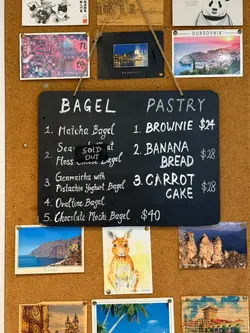 DUBROVNIK
BAGEL
1. Matcha Bagel
SOLD OUT
Floss Bagel
3. Genmaicha with
Pistachio Yoghurt Bagel
4. Ovaltine Bagel
5. Chocolate Mochi Bagel $40
PASTRY
1. BROWNIE $24
2. BANANA BREAD $28
3. CARROT CAKE $28